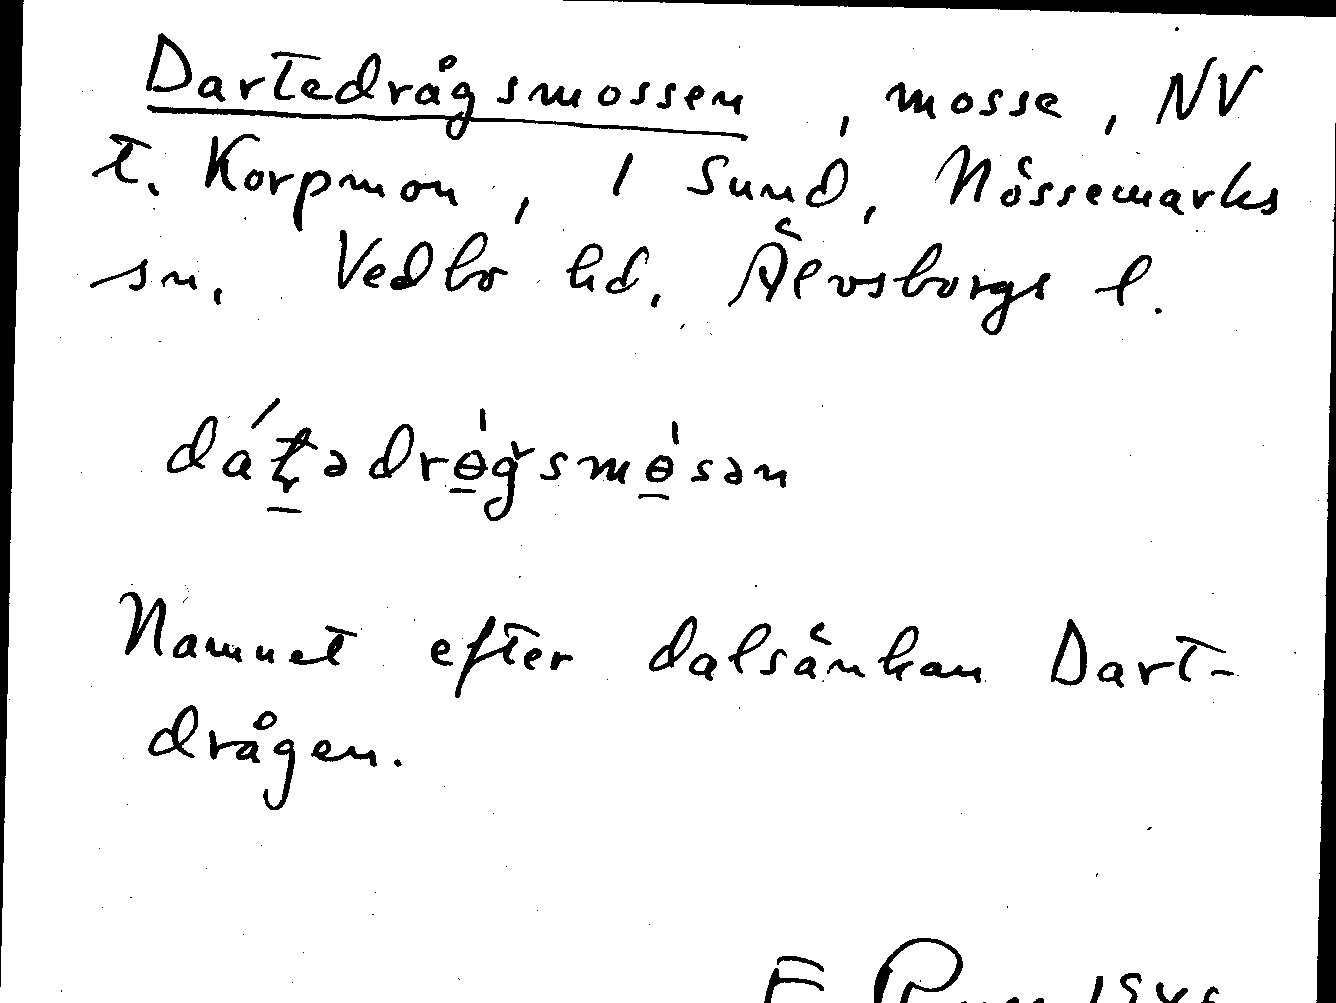 Dartedrågsmossen, mosse, NV
t. Korpmon, 1 Sund, Nössemarks
sn. Vedbo hd. Älvsborgs l.
dáʈədrɵ̀gsmɵ̀sən
Namnet efter dalsänkan Dart-
drågen.